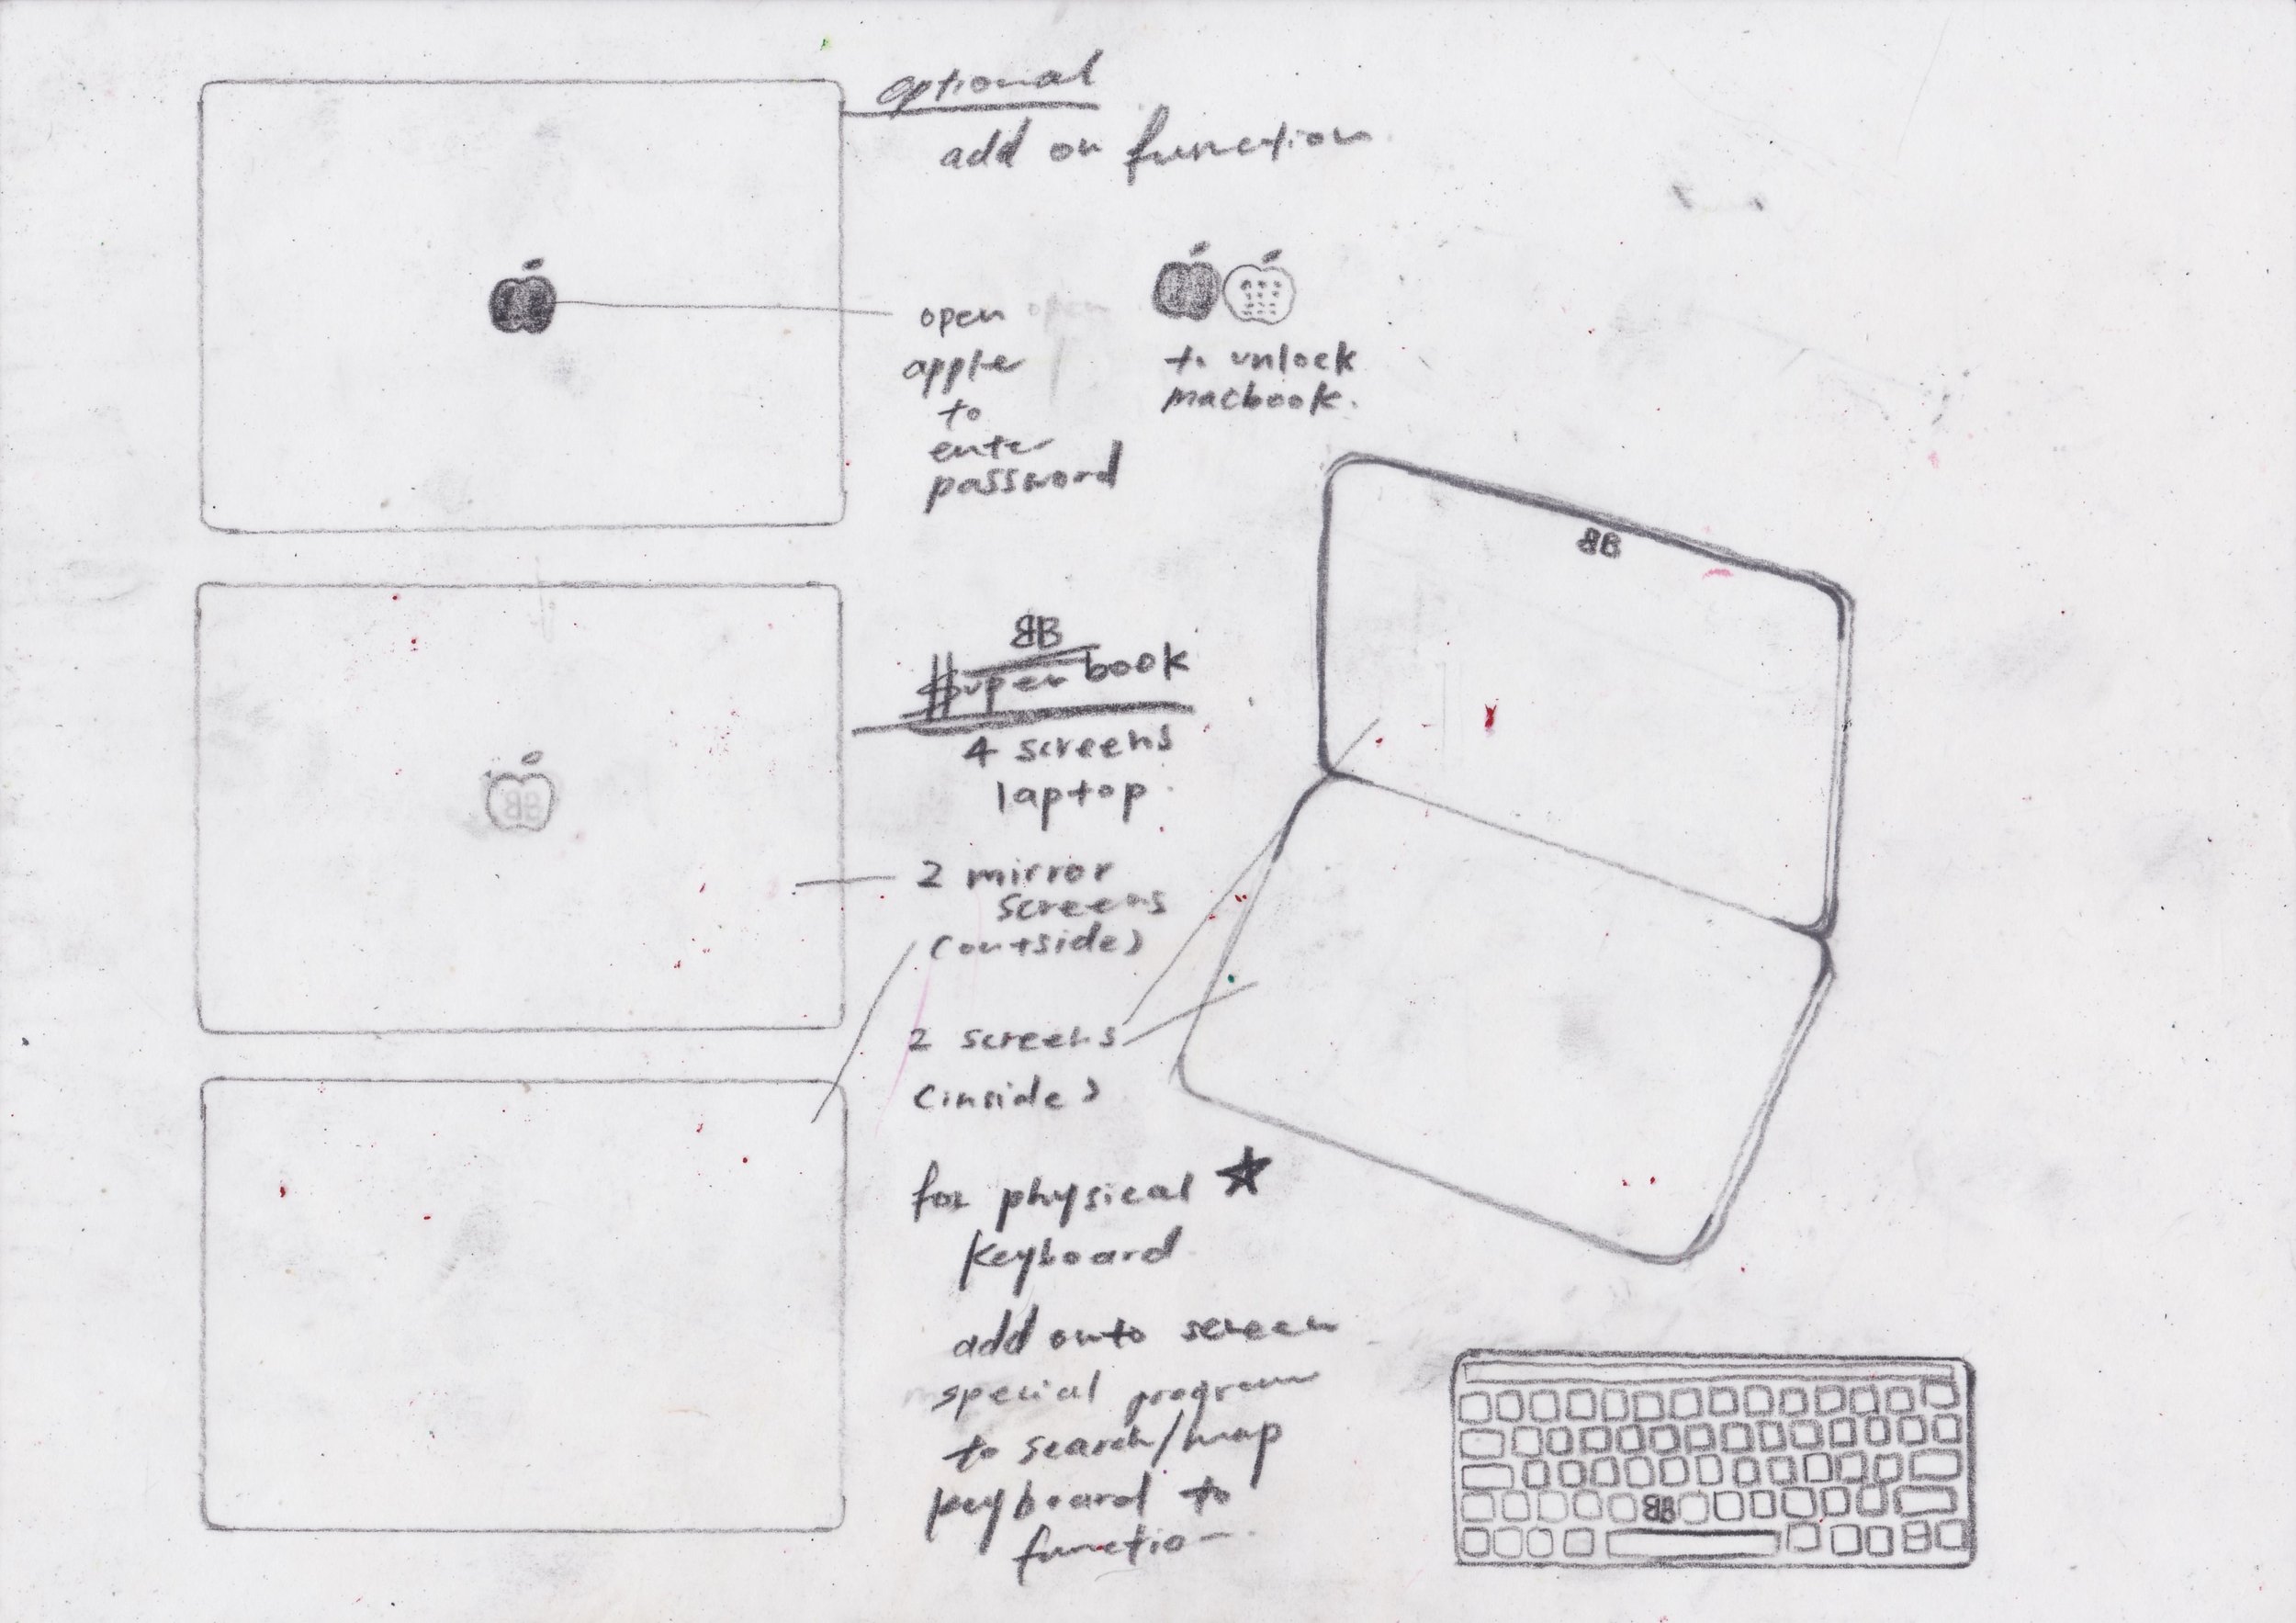 optional
add on function
open open
apple
to
enter
password
to unlock
macbook.
BB
BB
superbook
4 screens
laptop.
BB
2 mirror
screens
(outside)
2 screens
(inside)
for physical ★
keyboard
add onto screen
special program
to search/map
keyboard to
function.
BB